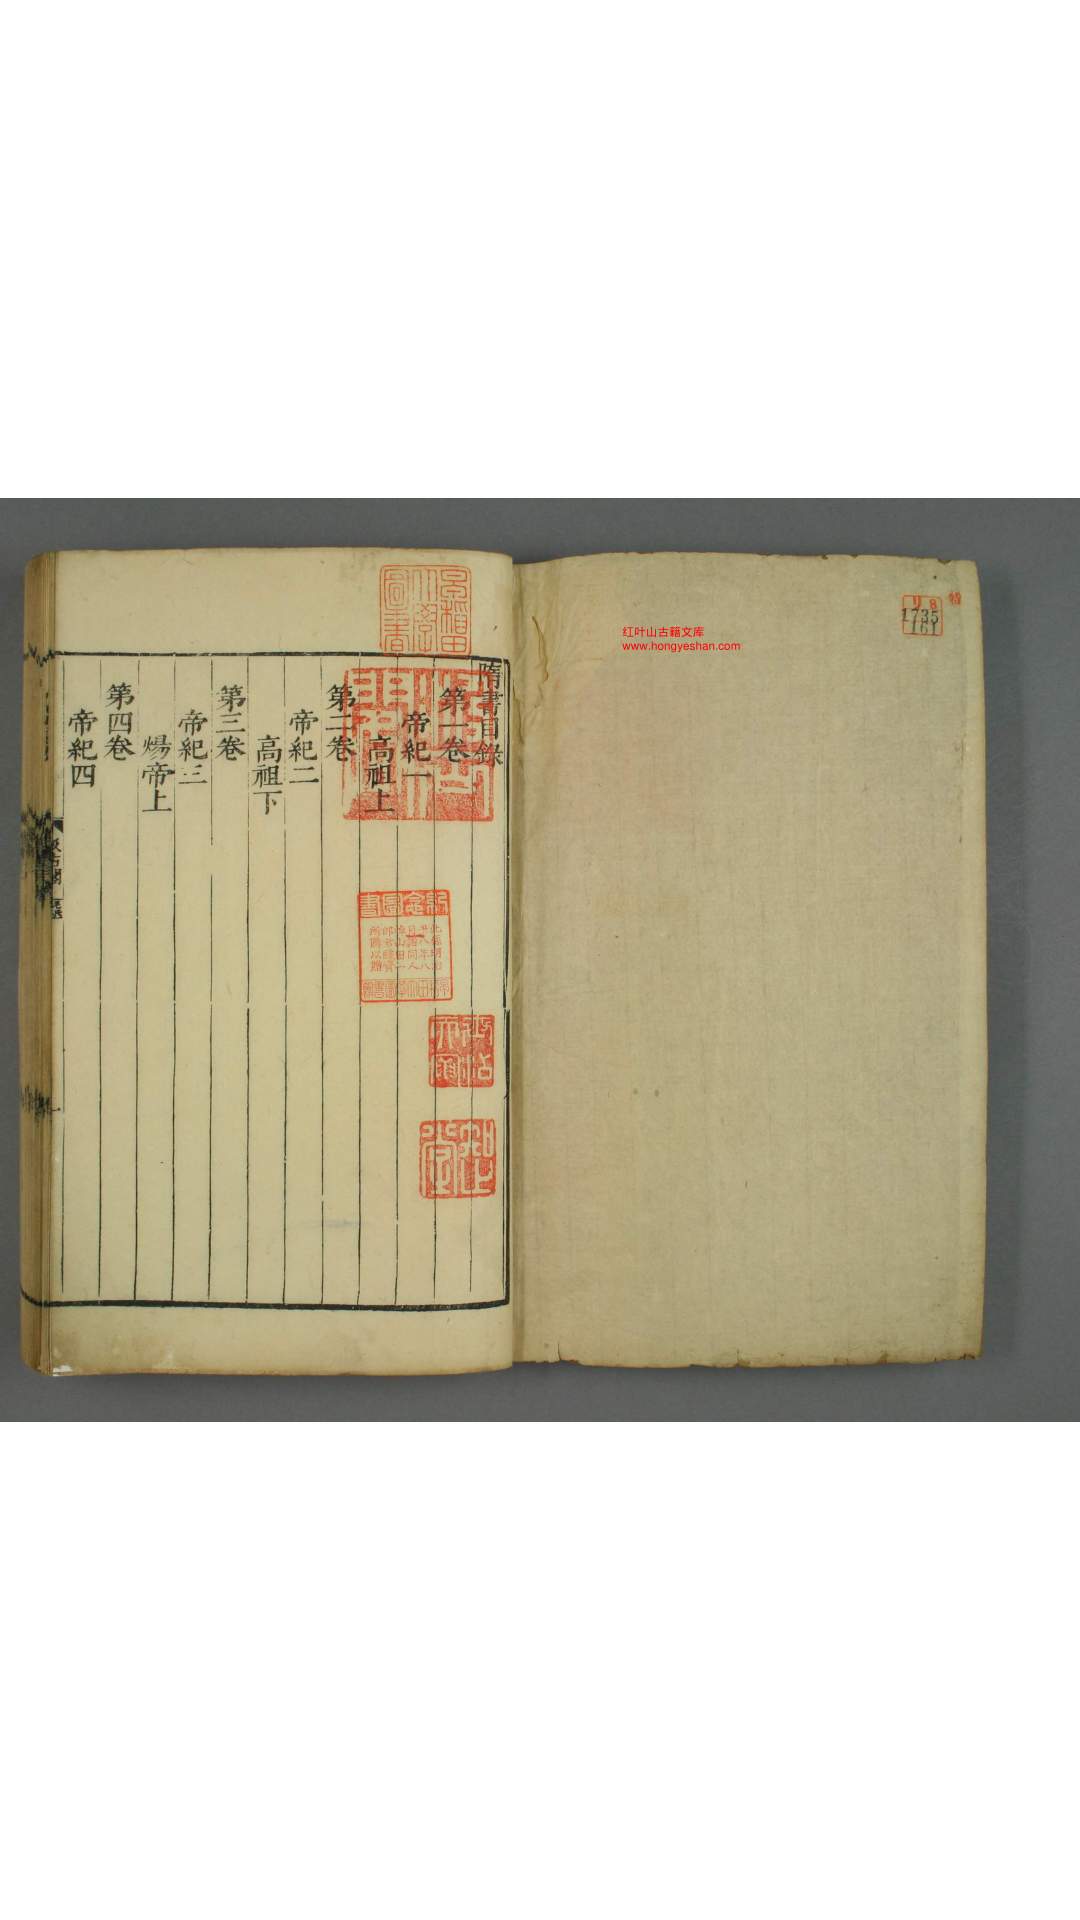 隋書目錄
第一卷
帝紀一
高祖上
第二卷
帝紀二
高祖下
第三卷
帝紀三
煬帝上
第四卷
帝紀四
早稻田
大學
圖書
紅叶山古籍文库
www.hongyeshan.com
リ 8
1735
161
特